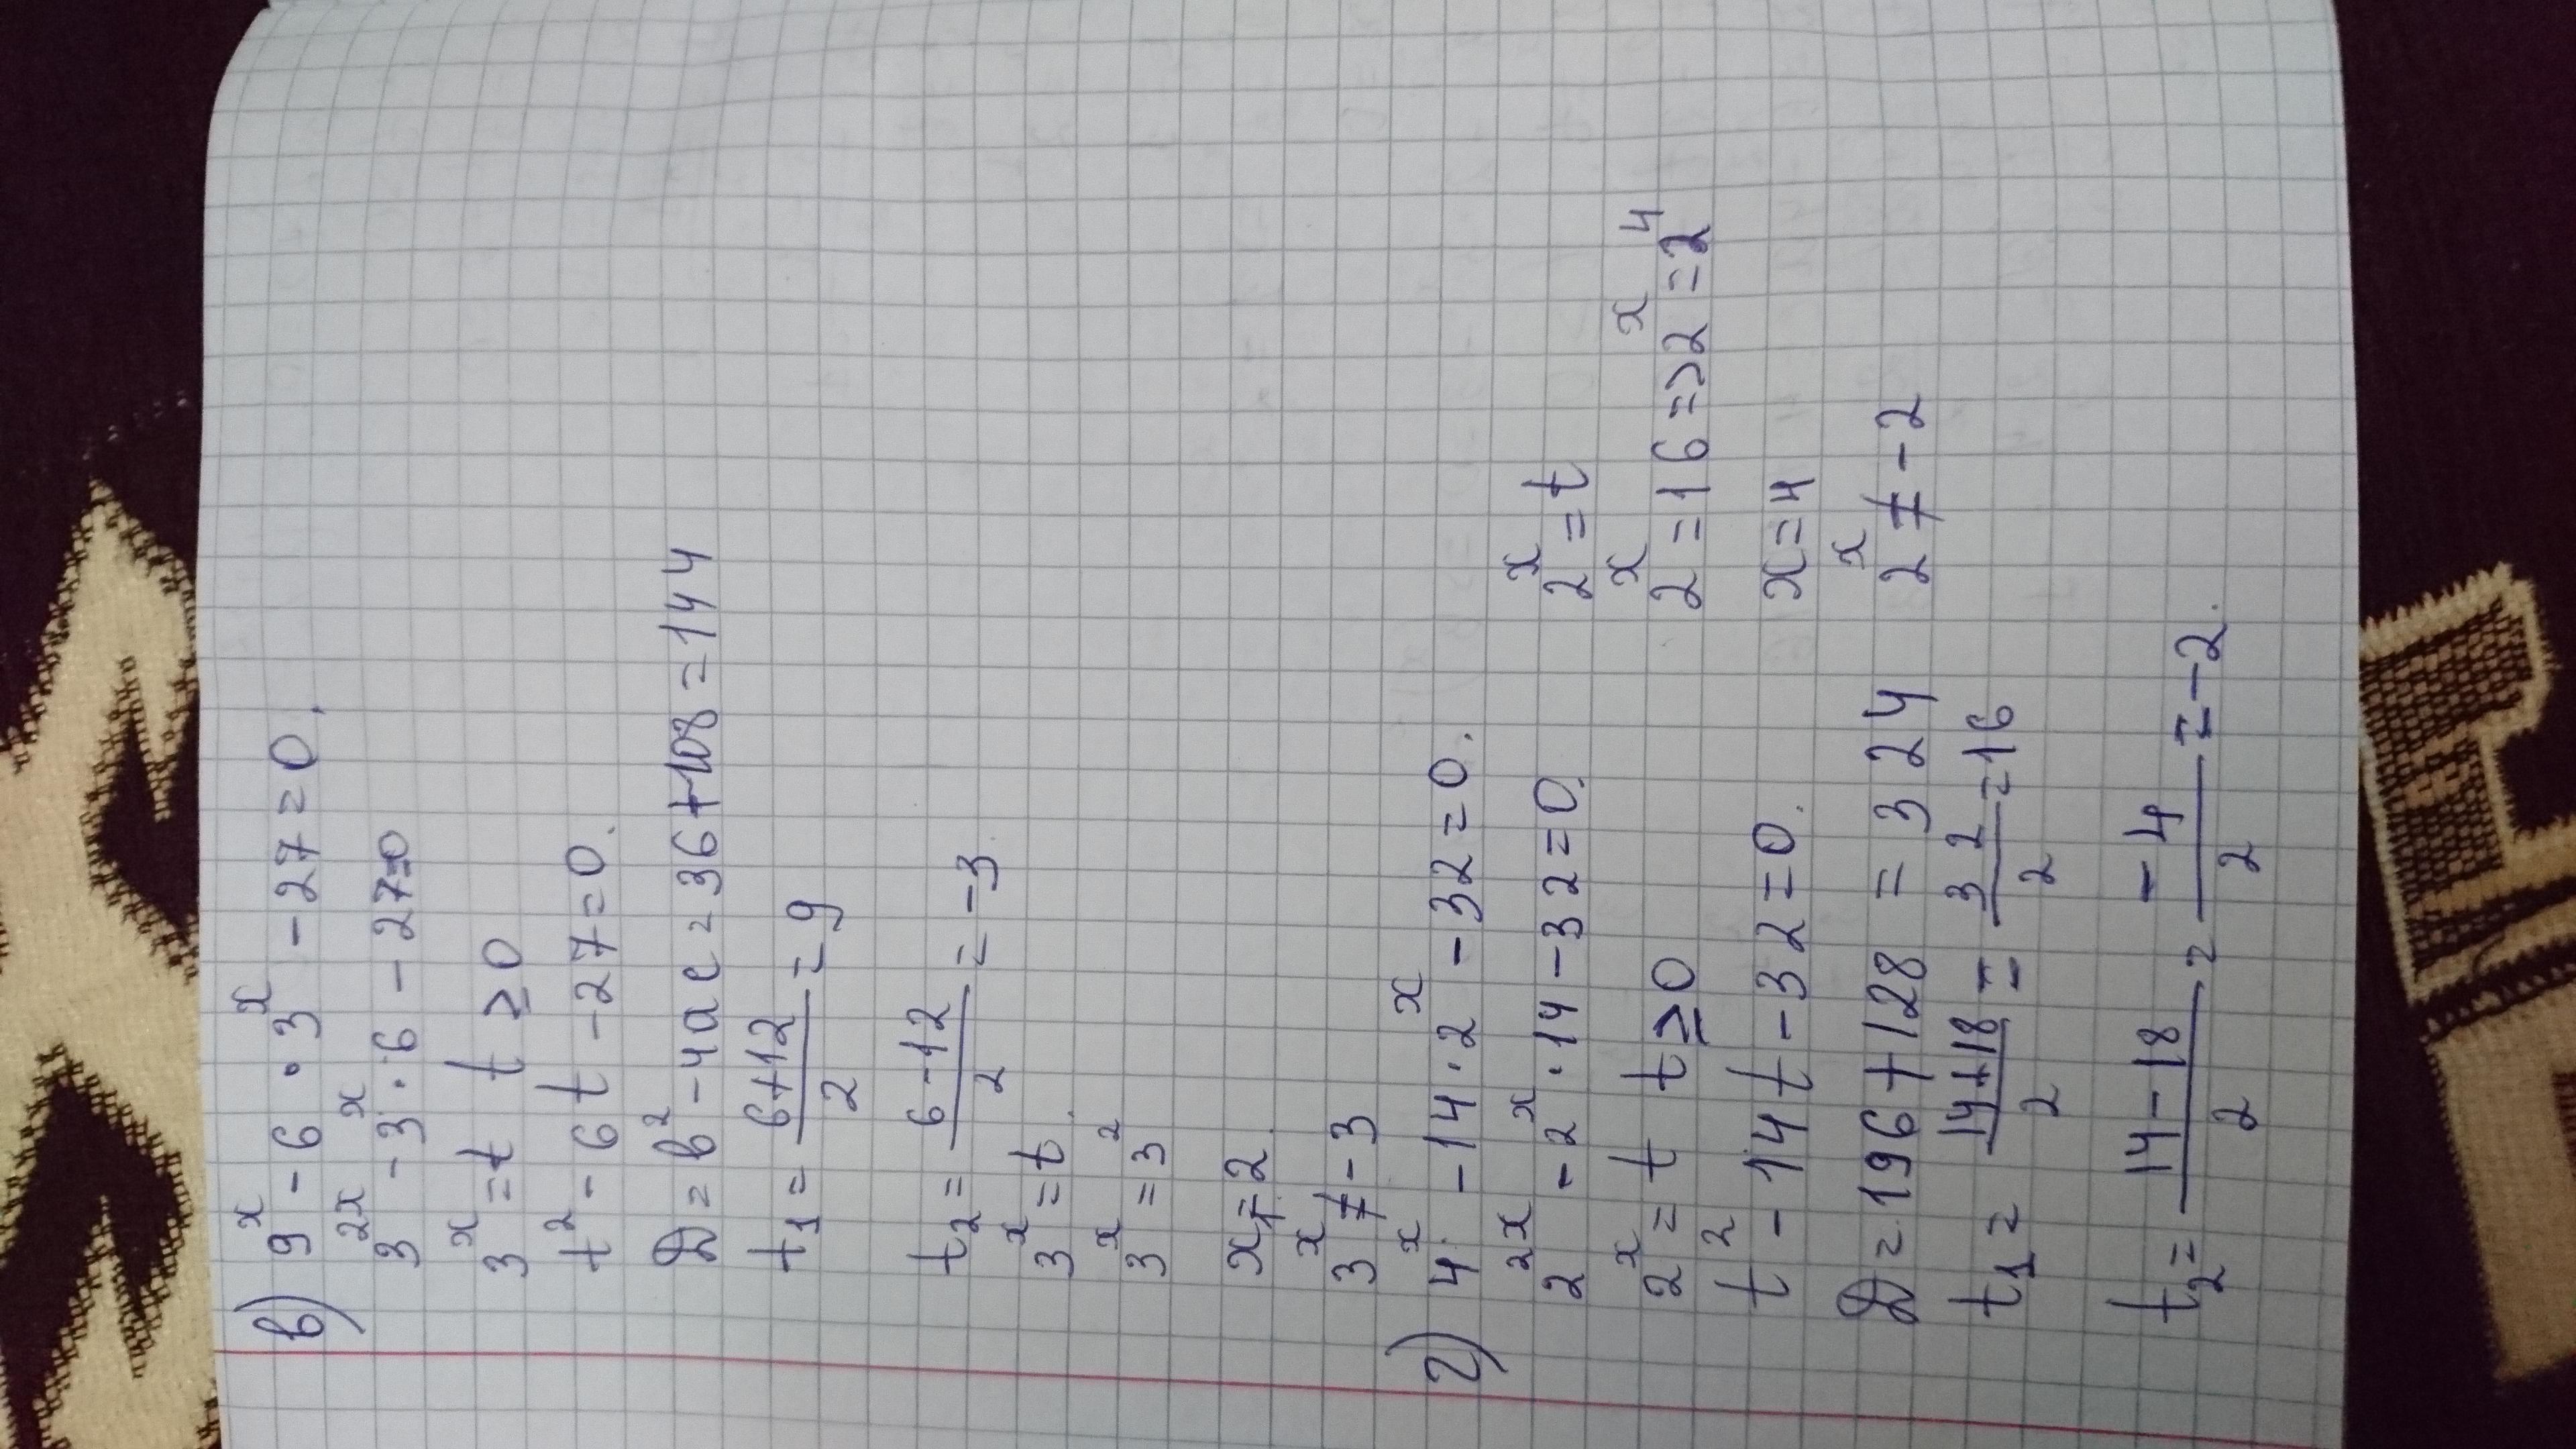 в) 9ˣ - 6 · 3ˣ - 27 = 0.
3²ˣ - 3ˣ · 6 - 27 = 0
3ˣ = t t ≥ 0
t² - 6t - 27 = 0.
D = b² - 4ac = 36 + 108 = 144
t₁ = (6+12)/2 = 9
t₂ = (6-12)/2 = -3
3ˣ = t.
3ˣ = 3²
x₁ = 2
3ˣ ≠ -3
г) 4ˣ - 14 · 2ˣ - 32 = 0.
2²ˣ - 2ˣ · 14 - 32 = 0.
2ˣ = t t ≥ 0
t² - 14t - 32 = 0.
D = 196 + 128 = 324
t₁ = (14+18)/2 = 32/2 = 16
t₂ = (14-18)/2 = -4/2 = -2.
2ˣ = t
2ˣ = 16 => 2ˣ = 2⁴
x = 4
2ˣ ≠ -2